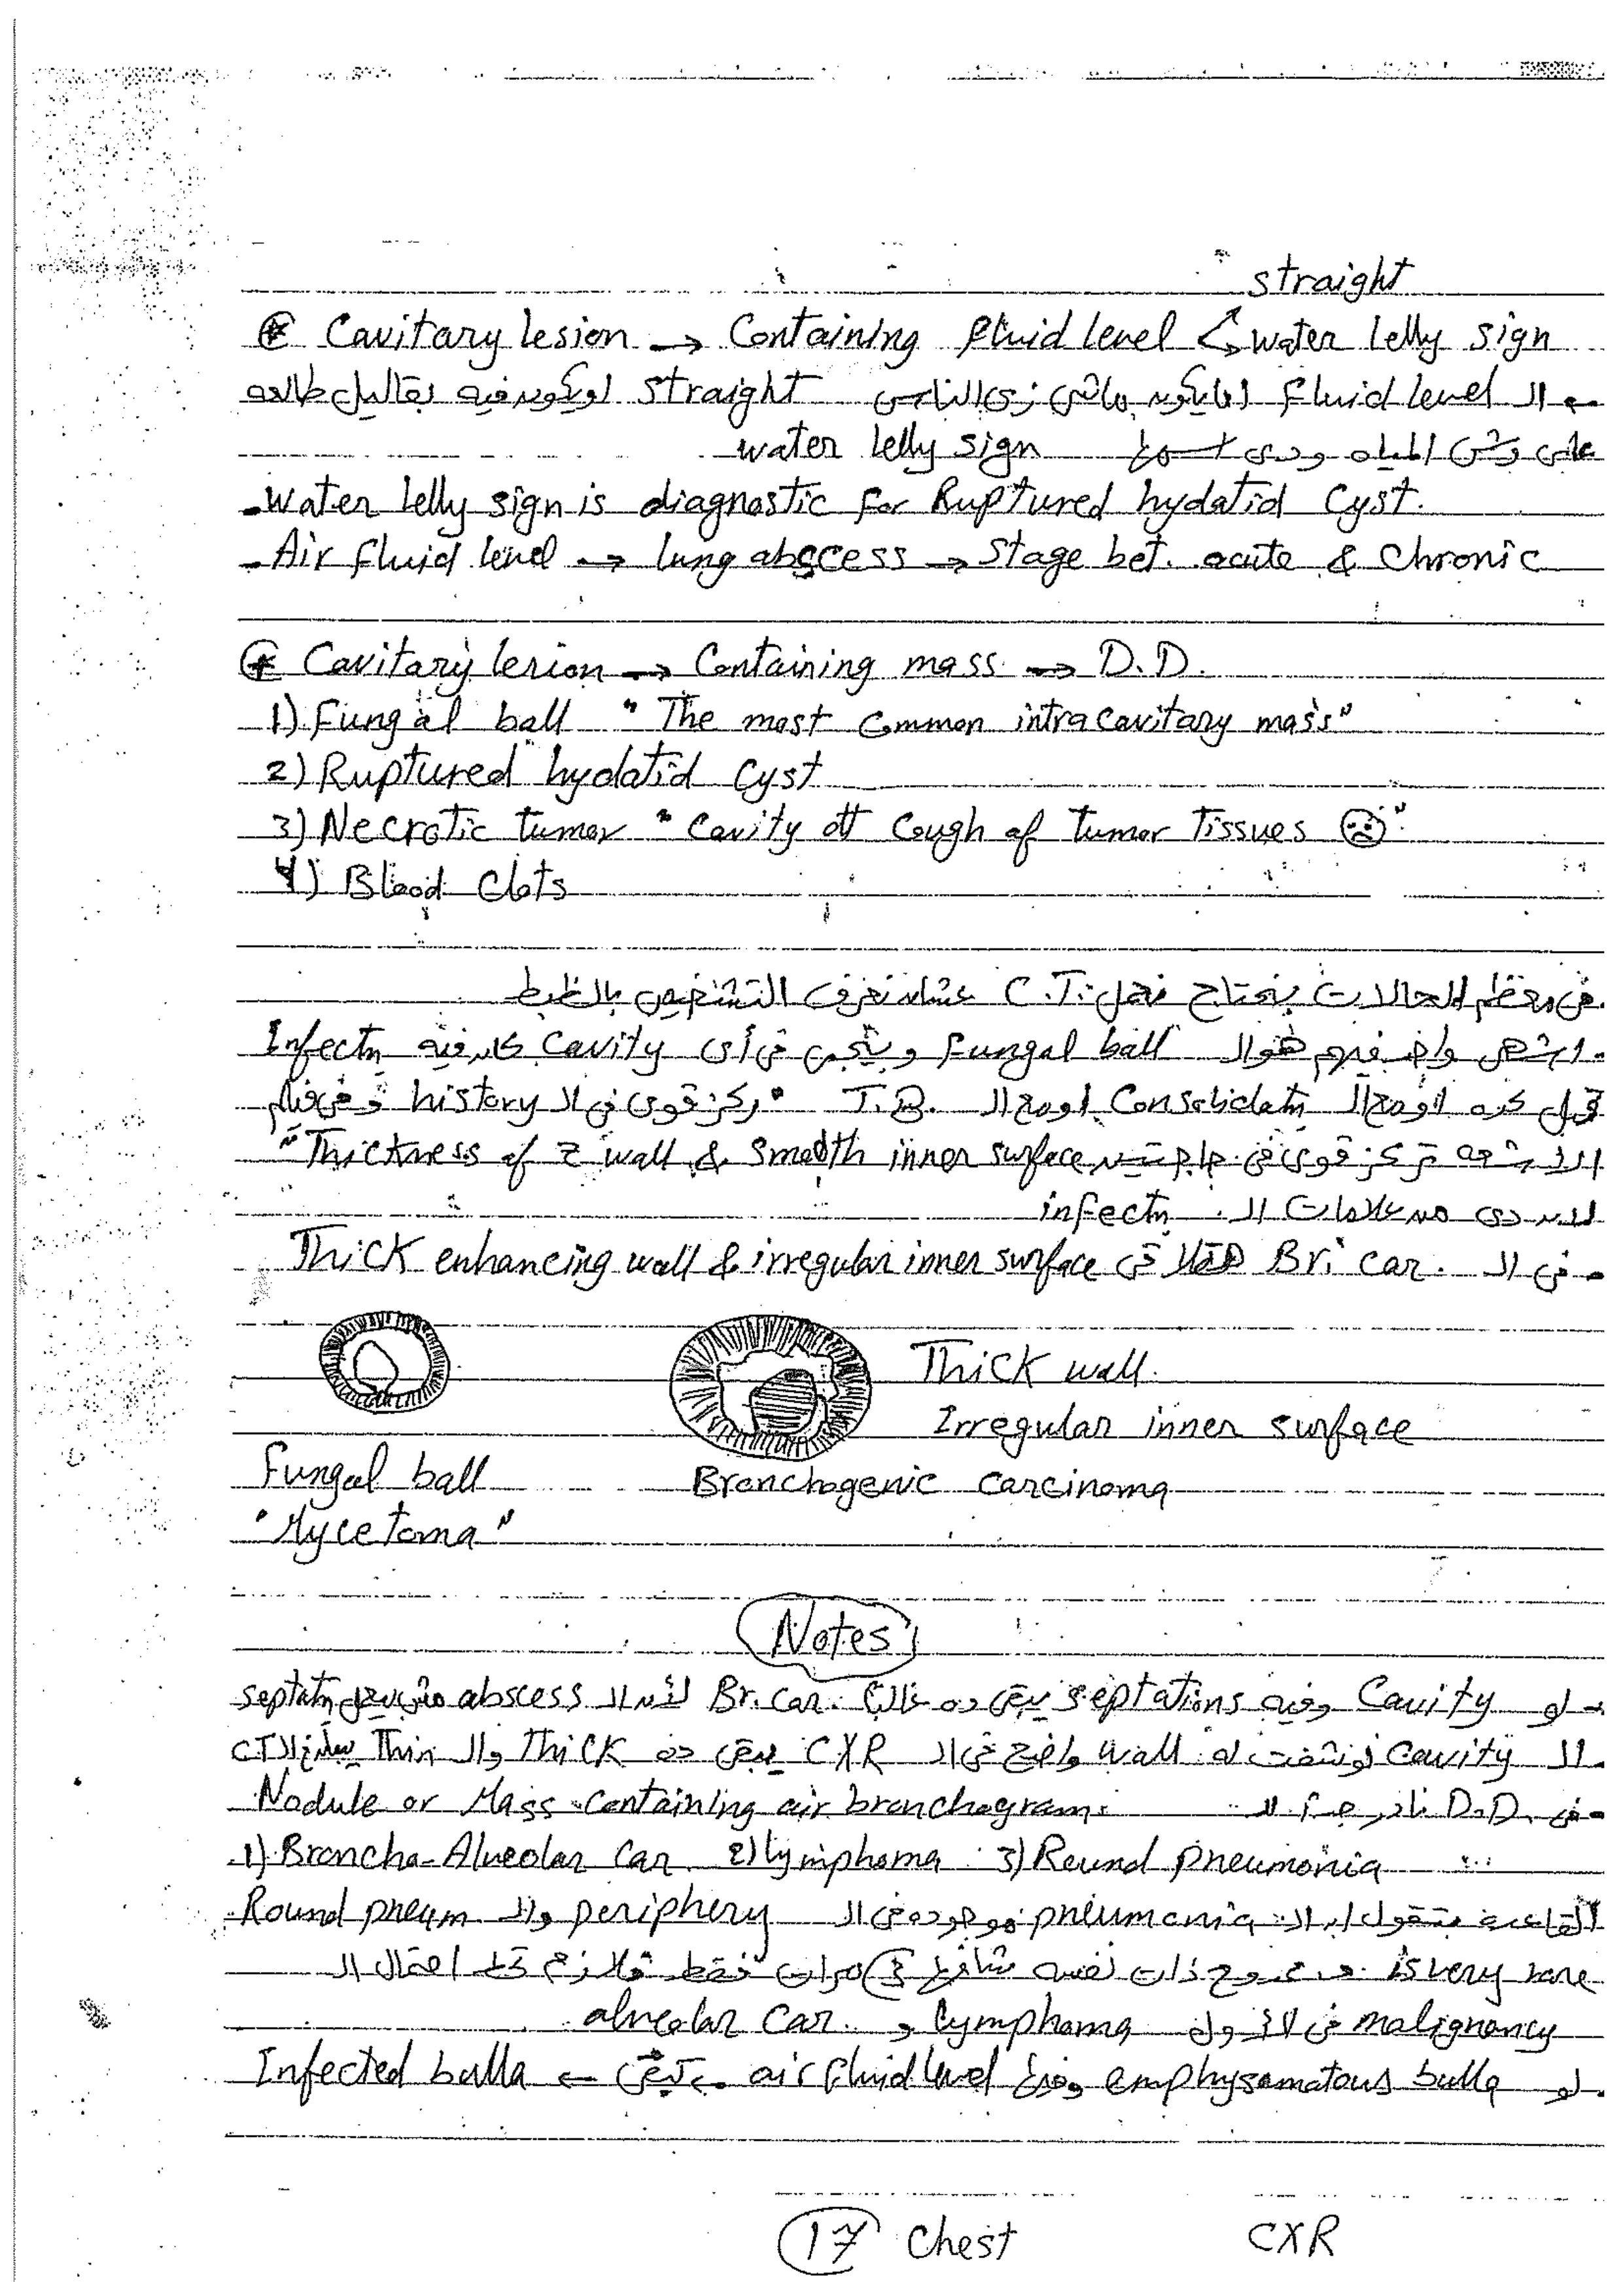 straight
* Cavitary lesion → Containing fluid level ↗↘ water lelly sign
← الـ fluid level اما يكون ماشى زى الناس straight او يكون فيه بقاليل طالعه
على وش المياه ودى اسمها water lelly sign
- water lelly sign is diagnostic for Ruptured hydatid Cyst.
- Air fluid level → lung abscess → Stage bet. acute & Chronic
* Cavitary lesion → Containing mass → D.D.
1) Fungal ball "The most Common intracavitary mass"
2) Ruptured hydatid Cyst
3) Necrotic tumor "Cavity dtt Cough of Tumor Tissues ☹"
4) Blood Clots
- فى معظم الحالات بنحتاج نعمل C.T. عشان نعرف التشخيص بالظبط
- اشهر واحد فيهم هو الـ Fungal ball وبتيجى فى أى Cavity كان فيه Infectn
قبل كده او مع الـ Consolidatn او مع الـ T.B. "ركز قوى فى الـ history وفى فيلم
الاشعه تركز قوى فى حاجتين Thickness of z wall & Smooth inner surface"
لان دى من علامات الـ infectn
- فى الـ Br. car. هتلاقى Thick enhancing wall & irregular inner surface
Thick wall
Irregular inner surface
Fungal ball
Bronchogenic carcinoma
"Mycetoma"
Notes
- لو Cavity وفيه septations يبقى ده غالباً Br. Car. لأن الـ abscess مش بيعمل septatn
- الـ Cavity لو شفت له wall واضح فى الـ CXR يبقى ده Thick والـ Thin الـ CT
- فى D.D. نادر جداً لـ Nodule or Mass Containing air bronchogram:
1) Broncho-Alveolar Car. 2) lymphoma 3) Round pneumonia
القاعدة بتقول ان الـ pneumonia موجوده فى الـ periphery والـ Round pneum
is very rare د. ممدوح ذات نفسه شافها ٣ مرات فقط فلازم تحط احتمال الـ
malignancy فى الأول lymphoma و alveolar Car.
- لو emphysematous bulla ومعاها air fluid level ← تبقى ← Infected bulla
17 Chest CXR